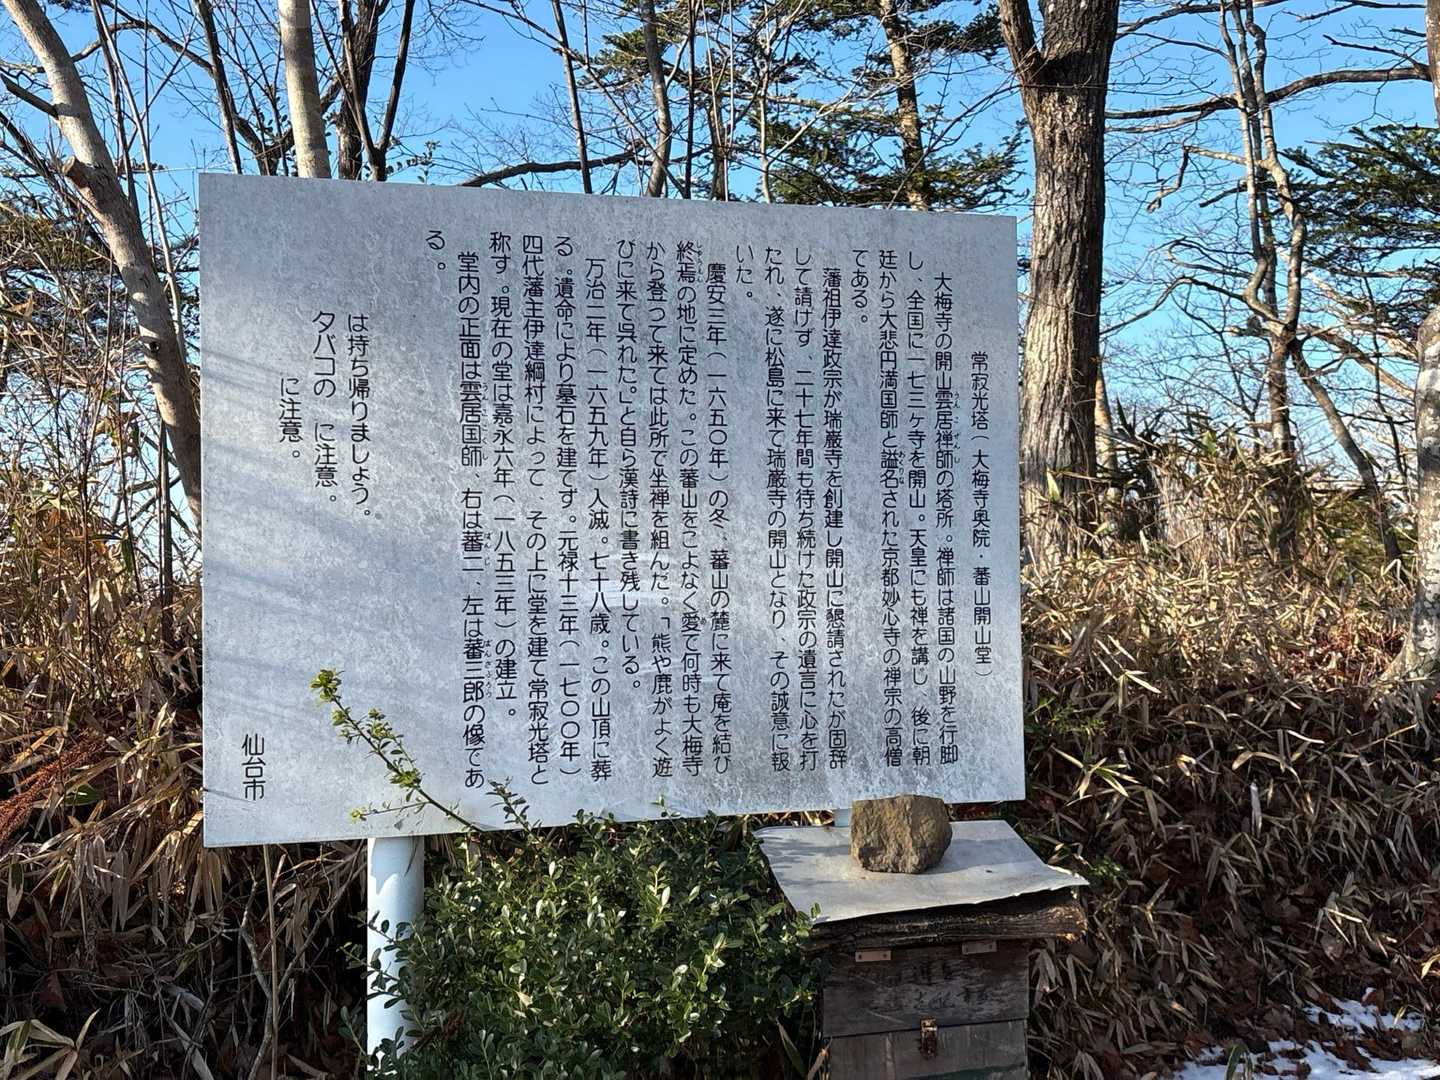 常寂光塔(大梅寺奥院・蕃山開山堂)
大梅寺の開山雲居禅師の塔所。禅師は諸国の山野を行脚
うんごぜんし
し、全国に一七三ヶ寺を開山。天皇にも禅を講じ、後に朝
廷から大悲円満国師と諡名された京都妙心寺の禅宗の高僧
おくりな
である。
藩祖伊達政宗が瑞巌寺を創建し開山に懇請されたが固辞
して請けず、二十七年間も待ち続けた政宗の遺言に心を打
たれ、遂に松島に来て瑞巌寺の開山となり、その誠意に報
いた。
慶安三年(一六五〇年)の冬、蕃山の麓に来て庵を結び
終焉の地に定めた。この蕃山をこよなく愛で何時も大梅寺
しゅうえん
め
から登って来ては此所で坐禅を組んだ。「熊や鹿がよく遊
びに来て呉れた。」と自ら漢詩に書き残している。
万治二年(一六五九年)入滅。七十八歳。この山頂に葬
る。遺命により墓石を建てず。元禄十三年(一七〇〇年)
四代藩主伊達綱村によって、その上に堂を建て常寂光塔と
称す。現在の堂は嘉永六年(一八五三年)の建立。
堂内の正面は雲居国師、右は蕃二、左は蕃三郎の像であ
うんごこくし
ばんじ
ばんざぶろう
る。
は持ち帰りましょう。
タバコの　に注意。
に注意。
仙台市